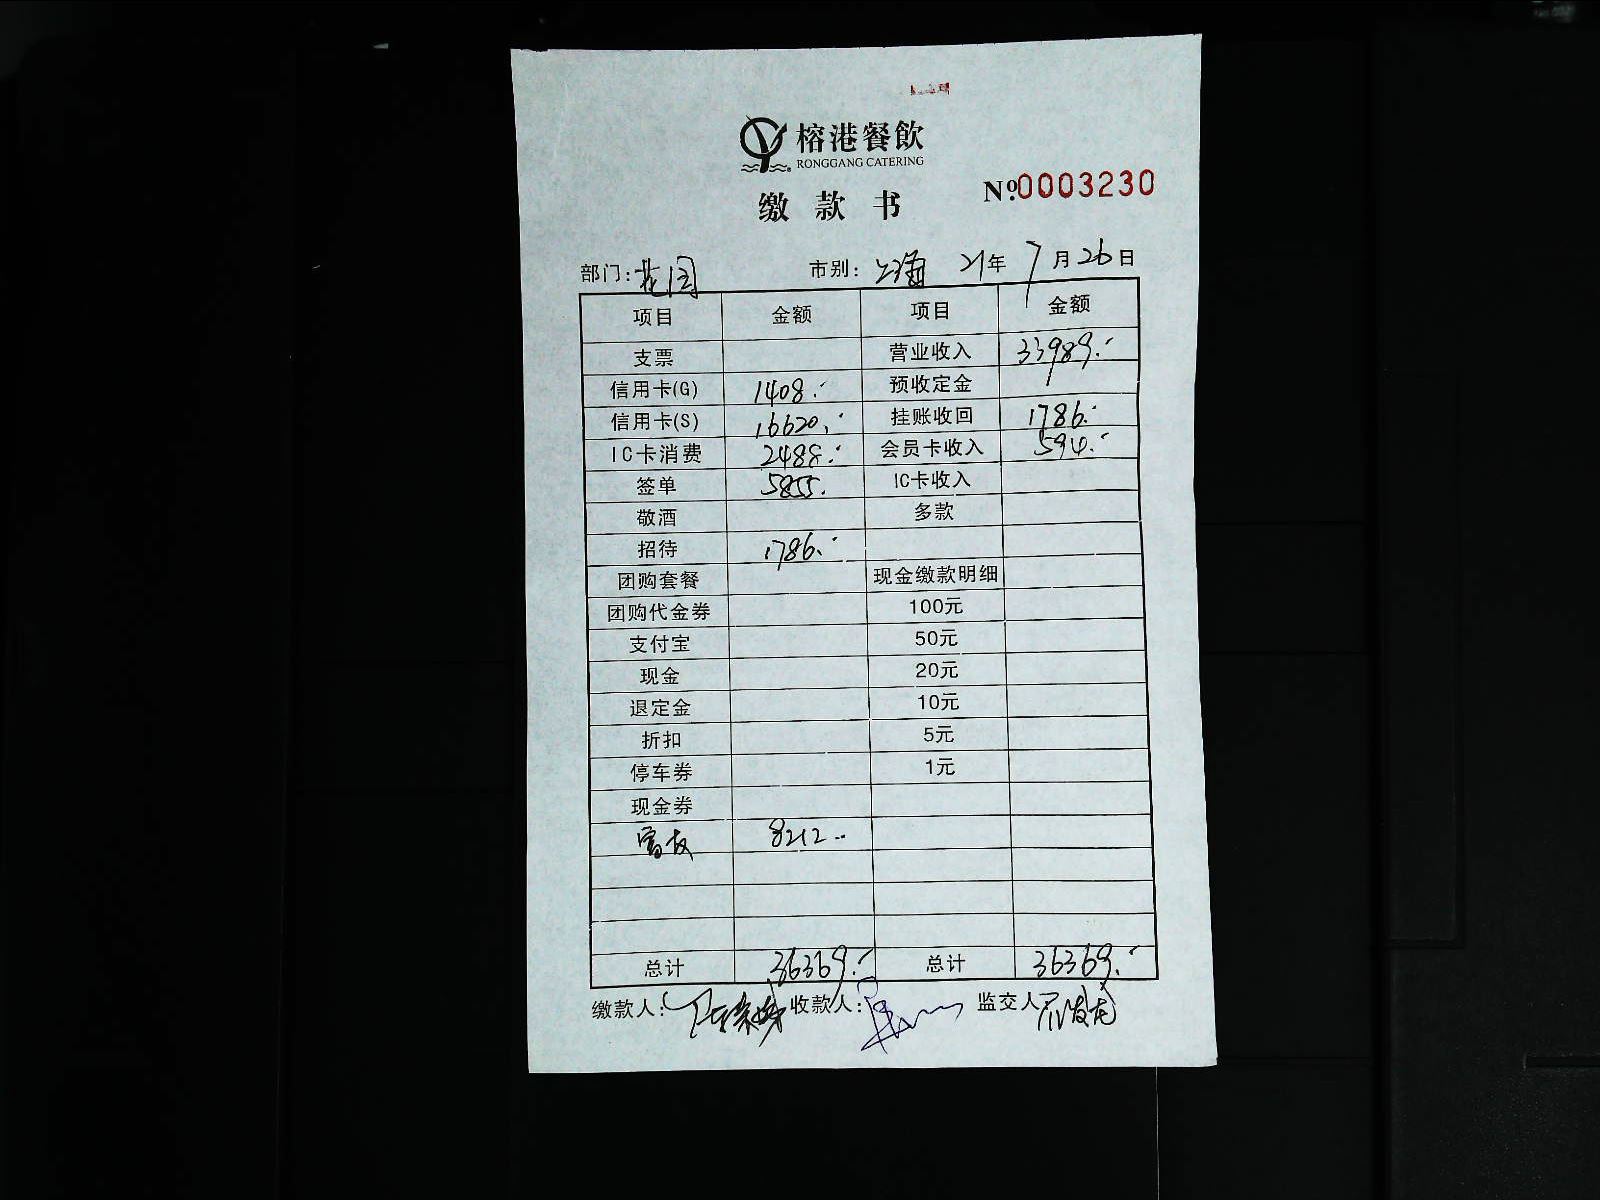 榕港餐飲
RONGGANG CATERING
缴款书
№.0003230
部门:花园 市别:上海 21年7月26日
项目 金额 项目 金额
支票 营业收入 33989.-
信用卡(G) 1408.- 预收定金
信用卡(S) 16620.- 挂账收回 1786.-
IC卡消费 2488.- 会员卡收入 594.-
签单 5855. IC卡收入
敬酒 多款
招待 1786.-
团购套餐 现金缴款明细
团购代金券 100元
支付宝 50元
现金 20元
退定金 10元
折扣 5元
停车券 1元
现金券
富友 8212.-
总计 36369.- 总计 36369.-
缴款人: 收款人: 监交人